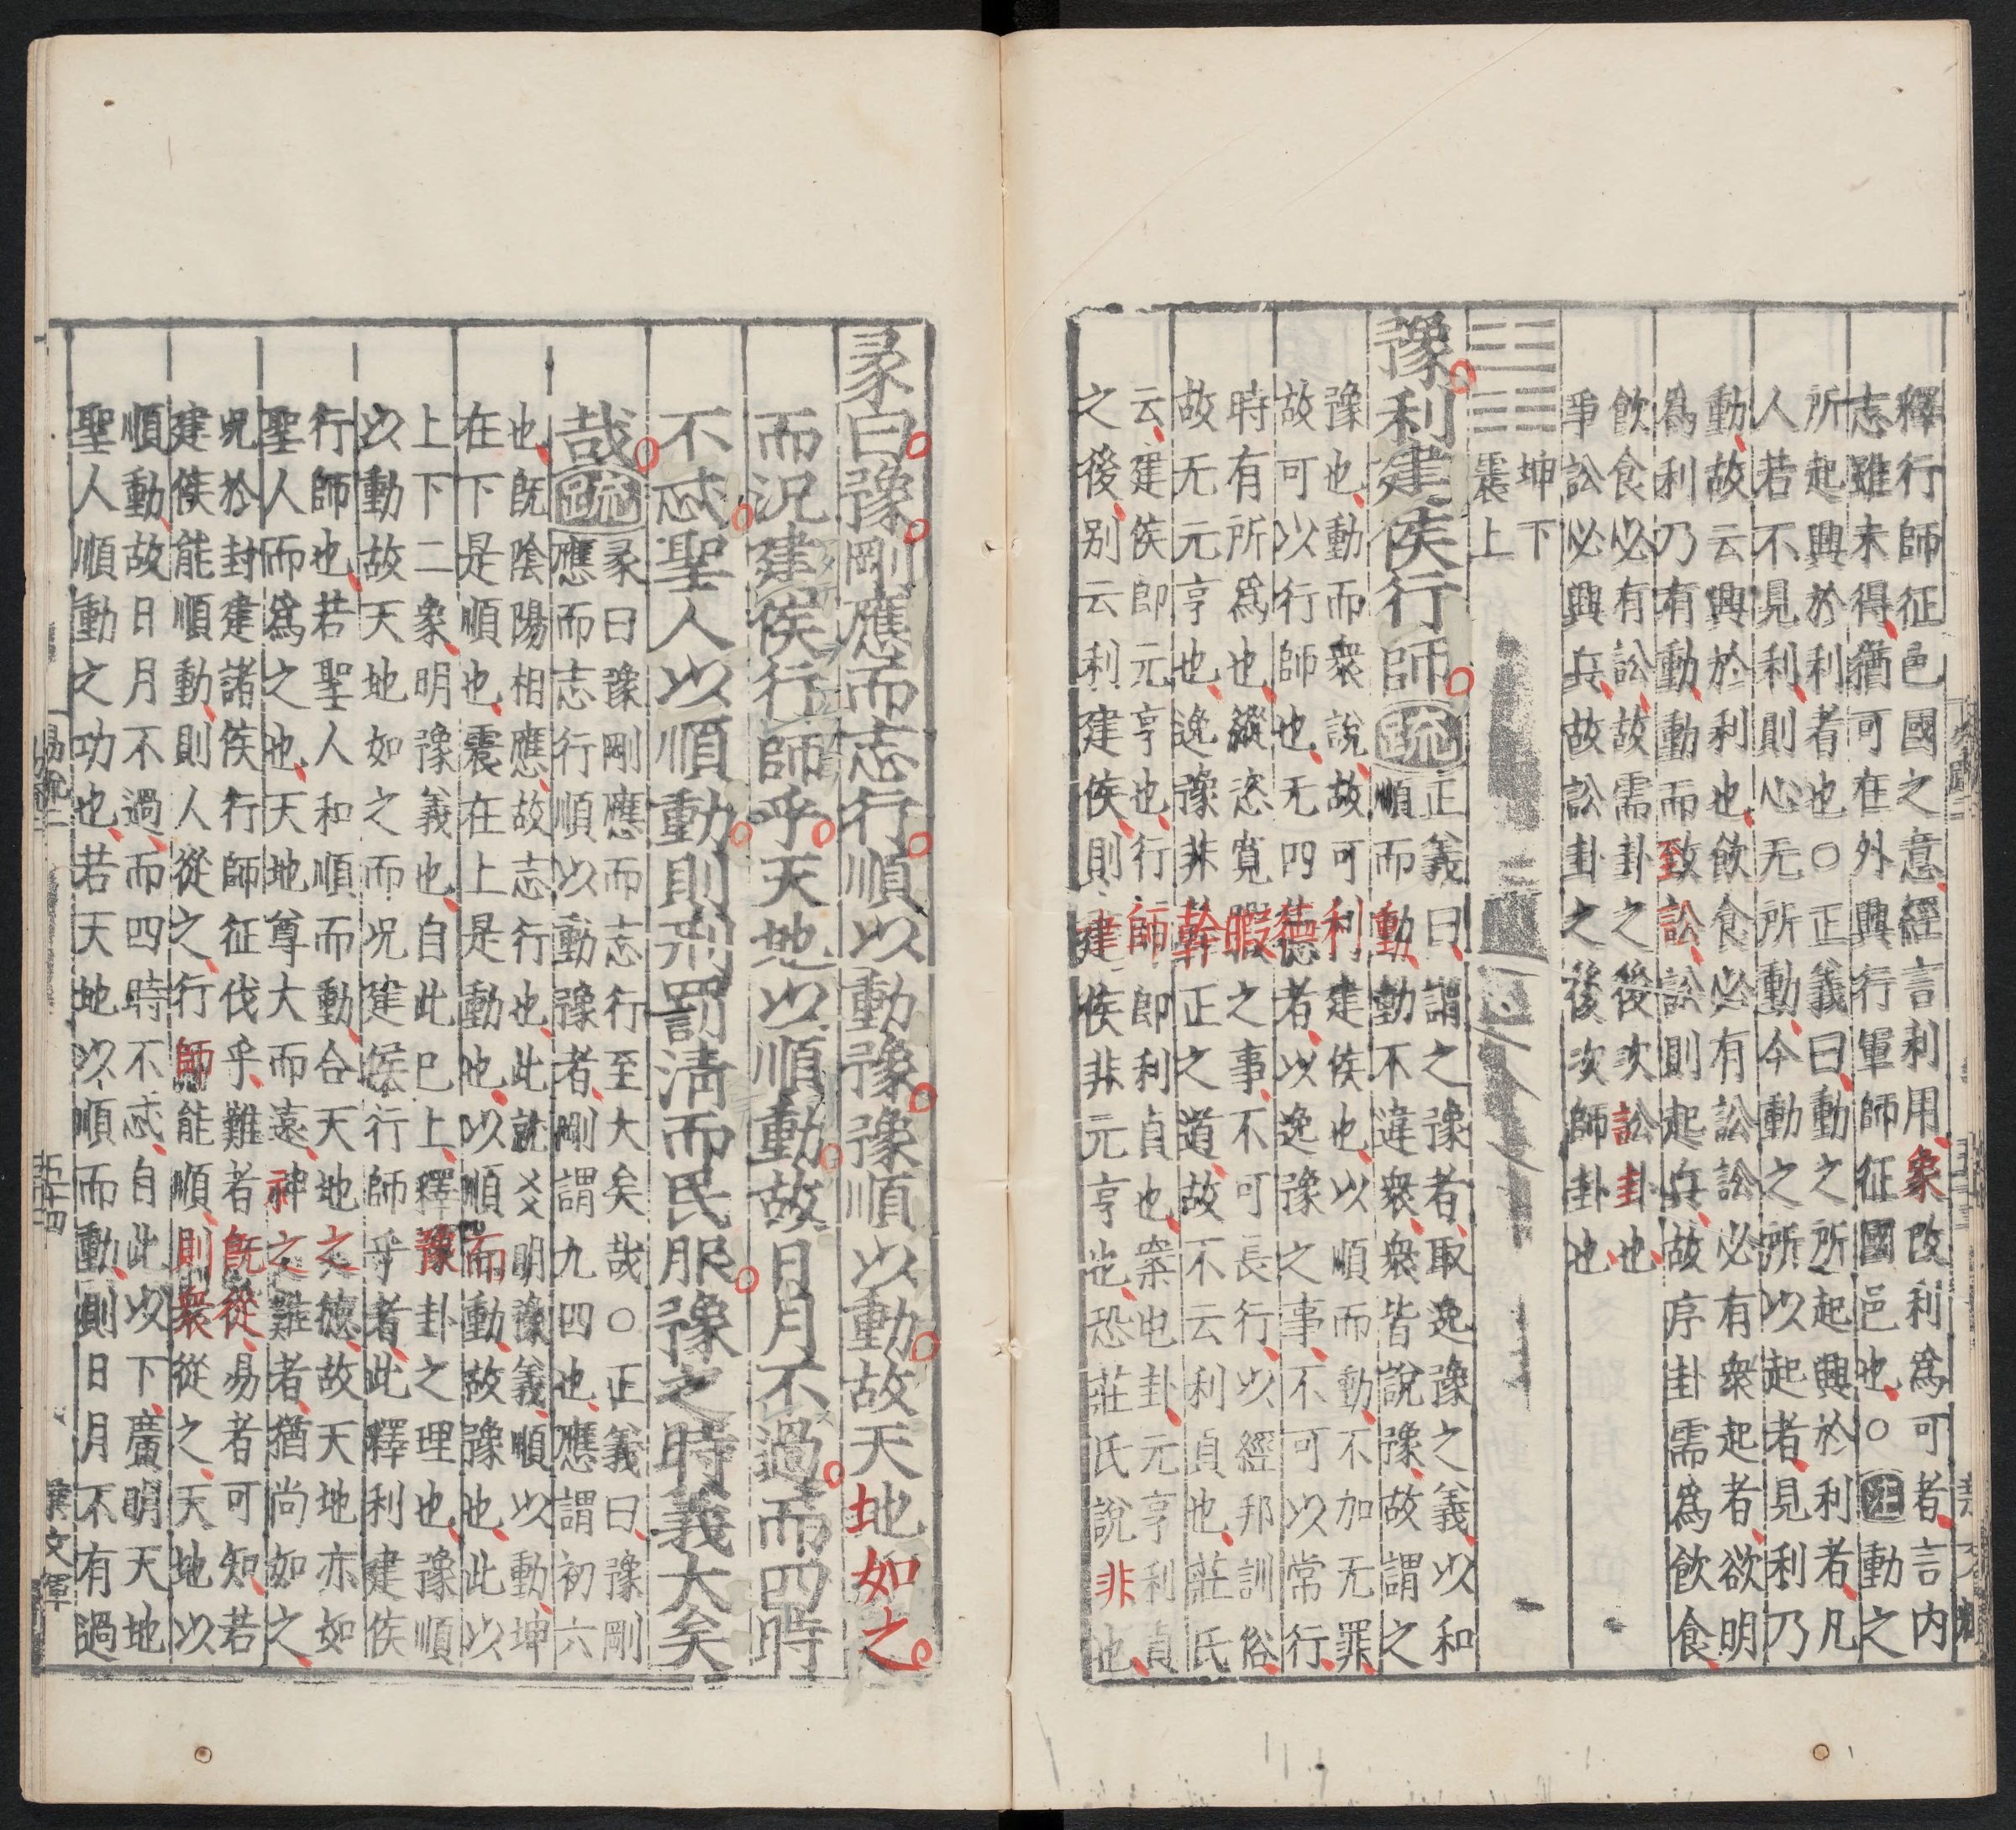 釋行師征邑國之意經言利用象改利爲可者言内
志雖未得猶可在外興行軍師征國邑也○注動之
所起興於利者也○正義曰動之所起興於利者凡
人若不見利則心无所動今動之所以起者見利乃
動故云興於利也飲食必有訟訟必有衆起者欲明
爲利乃有動動而致訟訟則起兵故序卦需爲飲食
飲食必有訟故需卦之後次訟卦也
爭訟必興兵故訟卦之後次師卦也
坤下
震上
豫利建侯行師疏
正義曰謂之豫者取逸豫之義以和
順而動動不違衆衆皆說豫故謂之
豫也動而衆說故可利建侯也以順而動不加无罪
故可以行師也无四德者以逸豫之事不可以常行
時有所爲也縱恣寬暇之事不可長行以經邦訓俗
故无元亨也逸豫非幹正之道故不云利貞也莊氏
云建侯即元亨也行師即利貞也案屯卦元亨利貞
之後别云利建侯則建侯非元亨也恐莊氏說非也
彖曰豫剛應而志行順以動豫豫順以動故天地如之
而況建侯行師乎天地以順動故日月不過而四時
不忒聖人以順動則刑罰淸而民服豫之時義大矣
哉疏
彖曰豫剛應而志行至大矣哉○正義曰豫剛
應而志行順以動豫者剛謂九四也應謂初六
也旣陰陽相應故志行也此就爻明豫義順以動坤
在下是順也震在上是動也以順而動故豫也此以
上下二象明豫義也自此已上釋豫卦之理也豫順
以動故天地如之而況建侯行師乎者此釋利建侯
行師也若聖人和順而動合天地之德故天地亦如
聖人而爲之也天地尊大而遠神之難者猶尚如之
況於封建諸侯行師征伐乎難者旣從易者可知若
建侯能順動則人從之行師能順則衆從之天地以
順動故日月不過而四時不忒自此以下廣明天地
聖人順動之功也若天地以順而動則日月不有過